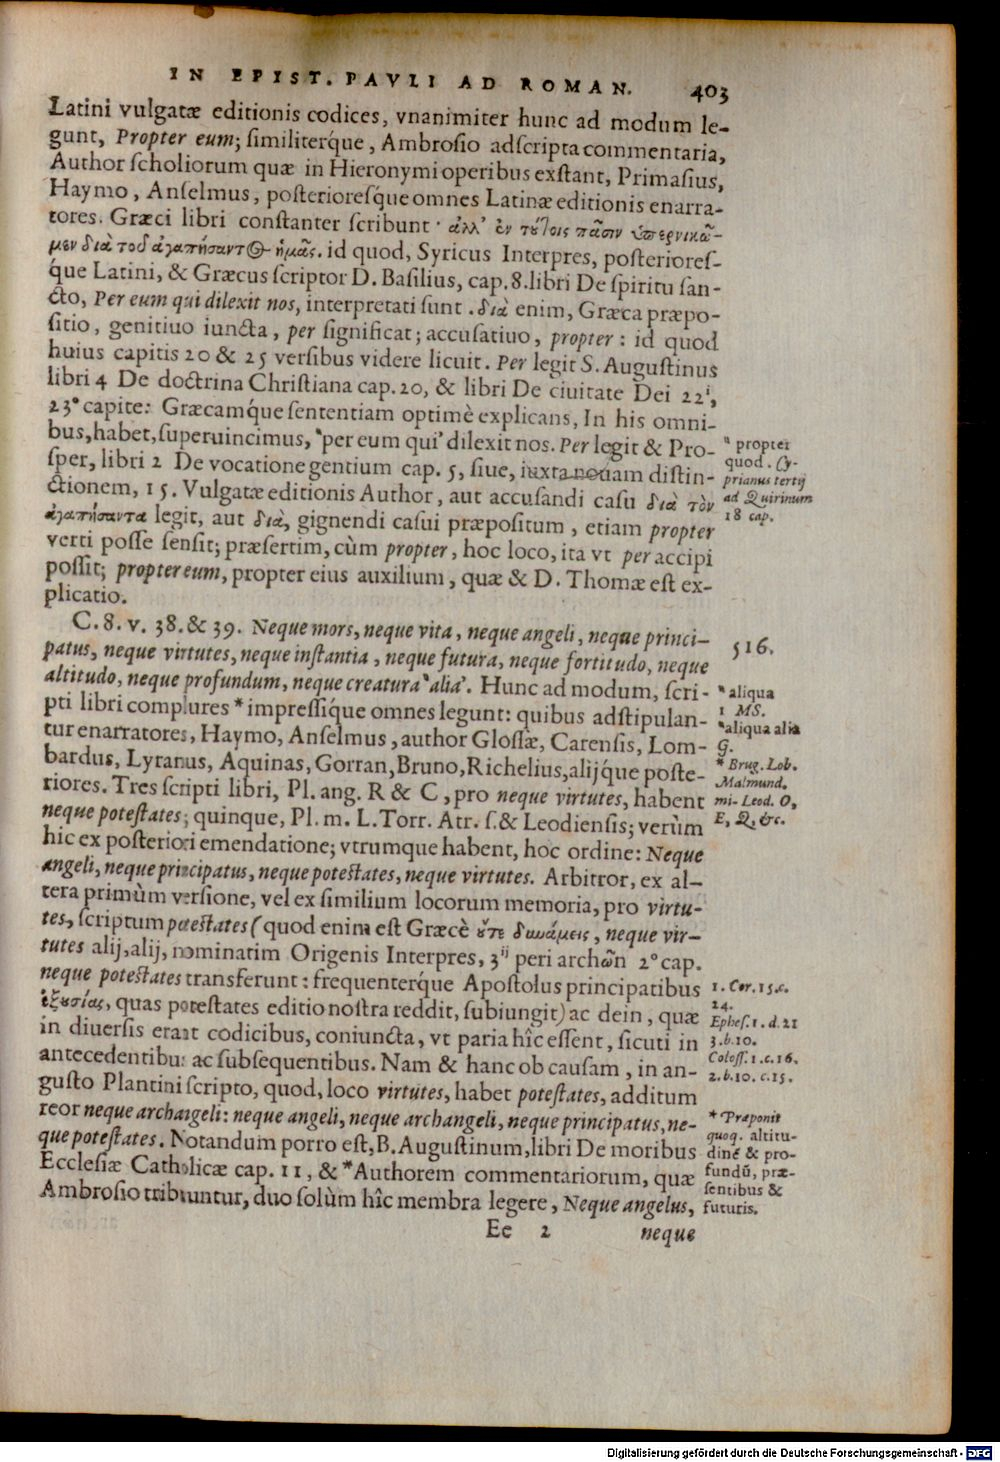 IN EPIST. PAVLI AD ROMAN. 403
Latini vulgatæ editionis codices, vnanimiter hunc ad modum le-
gunt, Propter eum; ſimiliterq́ue, Ambroſio adſcripta commentaria,
Author ſcholiorum quæ in Hieronymi operibus exſtant, Primaſius,
Haymo, Anſelmus, poſterioreſq́ue omnes Latinæ editionis enarra-
tores. Græci libri conſtanter ſcribunt· ἀλλ’ ἐν τούτοις πᾶσιν ὑπερνικῶ-
μεν διὰ τοῦ ἀγαπήσαντος ἡμᾶς. id quod, Syricus Interpres, poſterioreſ-
q́ue Latini, & Græcus ſcriptor D. Baſilius, cap. 8. libri De ſpiritu ſan-
cto, Per eum qui dilexit nos, interpretati ſunt. διὰ enim, Græca præpo-
ſitio, genitiuo iuncta, per ſignificat; accuſatiuo, propter: id quod
huius capitis 20 & 25 verſibus videre licuit. Per legit S. Auguſtinus
libri 4 De doctrina Chriſtiana cap. 20, & libri De ciuitate Dei 22ⁱ,
23° capite: Græcamq́ue ſententiam optimè explicans, In his omni-
bus, habet, ſuperuincimus, ‟per eum qui’ dilexit nos. Per legit & Pro-
ſper, libri 2 De vocatione gentium cap. 5, ſiue, iuxta nouam diſtin-
ctionem, 15. Vulgatæ editionis Author, aut accuſandi caſu διὰ τὸν
ἀγαπήσαντα legit, aut διὰ, gignendi caſui præpoſitum, etiam propter
verti poſſe ſenſit; præſertim, cùm propter, hoc loco, ita vt per accipi
poſſit; propter eum, propter eius auxilium, quæ & D. Thomæ eſt ex-
plicatio.
‟ propter
quod. Cy-
prianus tertij
ad Quirinum
18 cap.
C. 8. v. 38. & 39. Neque mors, neque vita, neque angeli, neque princi-
patus, neque virtutes, neque inſtantia, neque futura, neque fortitudo, neque
altitudo, neque profundum, neque creatura ‟alia’. Hunc ad modum, ſcri-
pti libri complures * impreſſiq́ue omnes legunt: quibus adſtipulan-
tur enarratores, Haymo, Anſelmus, author Gloſſæ, Carenſis, Lom-
bardus, Lyranus, Aquinas, Gorran, Bruno, Richelius, alijq́ue poſte-
riores. Tres ſcripti libri, Pl. ang. R & C, pro neque virtutes, habent
neque poteſtates; quinque, Pl. m. L. Torr. Atr. ſ. & Leodienſis; verùm
hic ex poſteriori emendatione; vtrumque habent, hoc ordine: Neque
angeli, neque principatus, neque poteſtates, neque virtutes. Arbitror, ex al-
tera primùm verſione, vel ex ſimilium locorum memoria, pro virtu-
tes, ſcriptum poteſtates (quod enim eſt Græcè οὔτε δυνάμεις, neque vir-
tutes alij, alij, nominatim Origenis Interpres, 3ⁱʲ peri archῶn 2° cap.
neque poteſtates transferunt: frequenterq́ue Apoſtolus principatibus
ἐξουσίας, quas poteſtates editio noſtra reddit, ſubiungit) ac dein, quæ
in diuerſis erant codicibus, coniuncta, vt paria hîc eſſent, ſicuti in
antecedentibus ac ſubſequentibus. Nam & hanc ob cauſam, in an-
guſto Plantini ſcripto, quod, loco virtutes, habet poteſtates, additum
reor neque archangeli: neque angeli, neque archangeli, neque principatus, ne-
que poteſtates. Notandum porro eſt, B. Auguſtinum, libri De moribus
Eccleſiæ Catholicæ cap. 11, & *Authorem commentariorum, quæ
Ambroſio tribuuntur, duo ſolùm hîc membra legere, Neque angelus,
516.
‟aliqua
1 MS.
‟aliqua alia
G.
* Brug. Lob.
Malmund.
mi-Leod. O,
E, Q, &c.
1. Cor. 15. c.
24.
Epheſ. 1. d. 21
3. b. 10.
Coloſſ. 1. c. 16.
2. b. 10. c. 15.
* Præponit
quoq. altitu-
dinē & pro-
fundū, præ-
ſentibus &
futuris.
Ee 2 neque
Digitalisierung gefördert durch die Deutsche Forschungsgemeinschaft - DFG